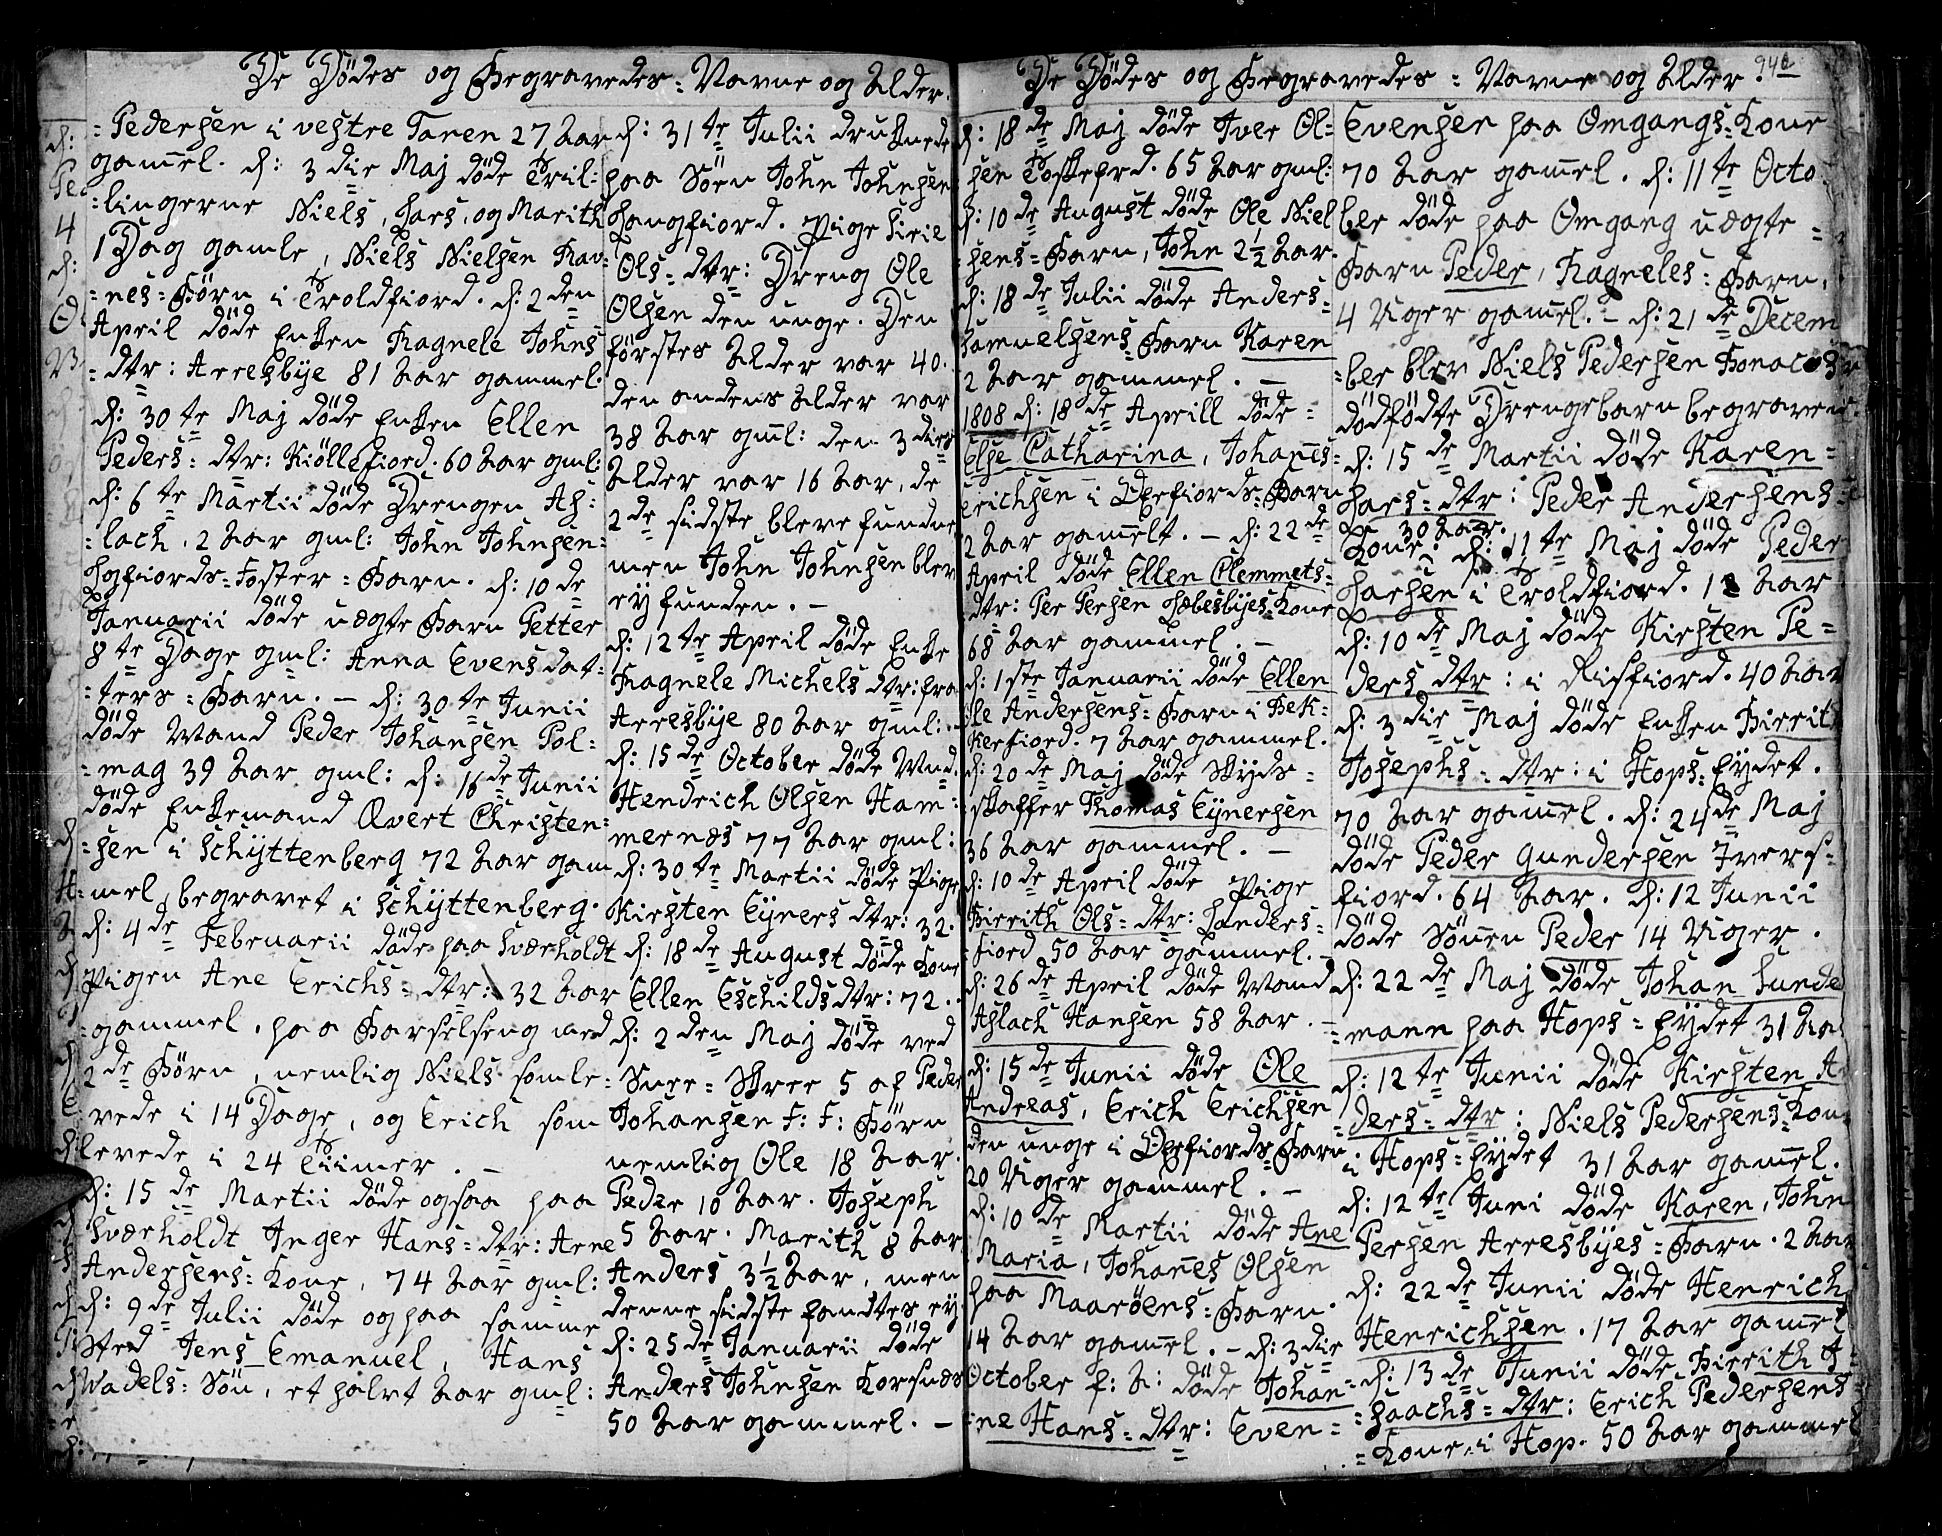 De Dödes og Begravedes = Navne og Alder.
= Pedersen i vestre Tanen 27 Aar
gam̅el. d: 3 die Maj döde Tril:
=lingerne Niels, Lars, og Marith
1 Dag gamle, Niels Nielsen Rav=
=nes = Börn i Troldfiord. d: 2 den
April döde Enken Ragnele Johns
= dtr: Arresbye 81 Aar gammel.
d: 30 te Maj döde Enken Ellen
Peders = dtr: Kiöllefiord. 60 Aar gml:
d: 6 te Martii döde Drengen As:
=lach, 2 Aar gml: John Johnsen=
Lgfiords = Foster = Barn. d: 10 de
Januarii döde uægte Barn Petter
8 te Dage gml: Anna Evensdat=
=ters = Barn. — d: 30 te Junii
döde Mand Peder Johansen Pol=
=mag 39 Aar gml: d: 16 de Junii
döde Enkemand Evert Christen=
=sen i Schyttenberg 72 Aar gam
=mel begravet i Schyttenberg.
d: 4 de Februarii döde paa Sværholdt
Pigen Ane Erichs = dtr: 32 Aar
=gammel. paa Barselseng med
2 de Börn, nemlig Niels som le=
vede i 14 Dage, og Erich som
levede i 24 Tiimer. —
d: 15 de Martii döde ogsaa paa
Sværholdt Inger Hans = dtr: Arne
Andersens = Kone, 74 Aar gml:
d: 9 de Julii döde og paa samme
Sted Jens Emanuel, Hans
Wadels = Sön, et halvt Aar gml:
d: 31 te Julii druknede
paa Söen John Johnsen
Langfiord. Pige Siril
Ols = dtr: Dreng Ole
Olsen den unge. Den
förstes Alder var 40.
den andens Alder var
38 Aar gml: den 3 dies
Alder var 16 Aar, de
2 de sidste bleve fundne
men John Johnsen blev
ey funden. —
d: 12 te April döde Enke
Ragnele Michels dtr: fra
Arresbye 80 Aar gml: —
d: 15 de October döde Mnd.
Hendrich Olsen Ham=
mernæs 77 Aar gml:
d: 30 te Martii döde Pige
Kirsten Eyners dtr: 32.
d: 18 de August döde Kone
Ellen Eschilds dtr: 72..
d: 2 den Maj döde ved
Snee = Skree 5 af Peder
Johansen F: F: Börn
nemlig Ole 18 Aar.
Peder 10 Aar. Joseph
5 Aar. Marith 8 Aar
Anders 3½ Aar, men
denne sidste fandtes ey.
d: 25 de Januarii döde
Anders Johnsen Korsnæs
50 Aar gammel. —
De Dödes og Begravedes = Navne og Alder.
940
d: 18 de Maj döde Iver Ol=
sen Toskefrd. 65 Aar gml:
d: 10 de August döde Ole Niel
sens = Barn, John 2½ Aar.
d: 18 de Julii döde Anders=
Samuelsens = Barn Karen
2 Aar gammel. —
1808 d: 18 de Aprill döde =
Else Catharina, Johan̅es=
Erichsen i Eefiords = Barn
2 Aar gam̅elt. — d: 22 de
April döde Ellen Clemmets=
dtr: Per Persen Læbesbyes = Kone
68 Aar gammel. —
d: 1 ste Januarii döde Ellen
Ole Andersens = Barn i Bek=
kerfiord. 7 Aar gammel.
d: 20 de Maj döde Skyds=
skaffer Thomas Eynersen
36 Aar gammel. —
d: 10 de April döde Pige
Birrith Ols = dtr: Landers=
fiord 50 Aar gammel. —
d: 26 de April döde Mand
Aslach Hansen 58 Aar. —
d: 15 de Junii döde Ole
Andreas, Erich Erichsen
den unge i Eefiords = Barn
20 Uger gammel. —
d: 10 de Martii döde Ane
Maria, Johan̅es Olsen
paa Maaröens = Barn.
14 Aar gam̅el. — d: 3 die
October f: A: döde Johan=
=ne Hans = dtr: Even=
Evensen paa Omgangs = Kone
70 Aar gam̅el. d: 11 te Octo
ber döde paa Omgang uægte =
Barn Peder, Ragneles = Barn.
4 Uger gam̅el. — d: 21 de Decem
=ber blev Niels Pedersen
dödfödte Drengebarn begraven.
d: 15 de Martii döde Karen=
Lars = dtr: Peder Andersens =
Kone. 30 Aar. d: 11 te Maj döde Peder
Larsen i Troldfiord. 12 Aar
d: 10 de Maj döde Kirsten Pe=
ders dtr: i Risfiord. 40 Aar
d: 3 die Maj döde Enken Birrith
Josephs = dtr: i Hops = Eydet.
70 Aar gam̅el. d: 24 de Maj
döde Peder Gundersen Ivers=
fiord. 64 Aar. d: 12 Junii
döde Sönen Peder 14 Uger.
d: 22 de Maj döde Johan Lunde
=mann paa Hops = Eydet 31 Aar
d: 12 te Junii döde Kirsten An
=ders = dtr: Niels Pedersens Kone
i Hops = Eydet 31 Aar gam̅el.
d: 12 te Juni döde Karen, John
Persen Arresbyes = Barn. 2 Aar
d: 22 de Junii döde Henrich
Henrichsen. 17 Aar gam̅el
d: 13 de Junii döde Birrith I=
=saachs = dtr: Erich Pedersens
= Kone i Hop. 50 Aar gammel